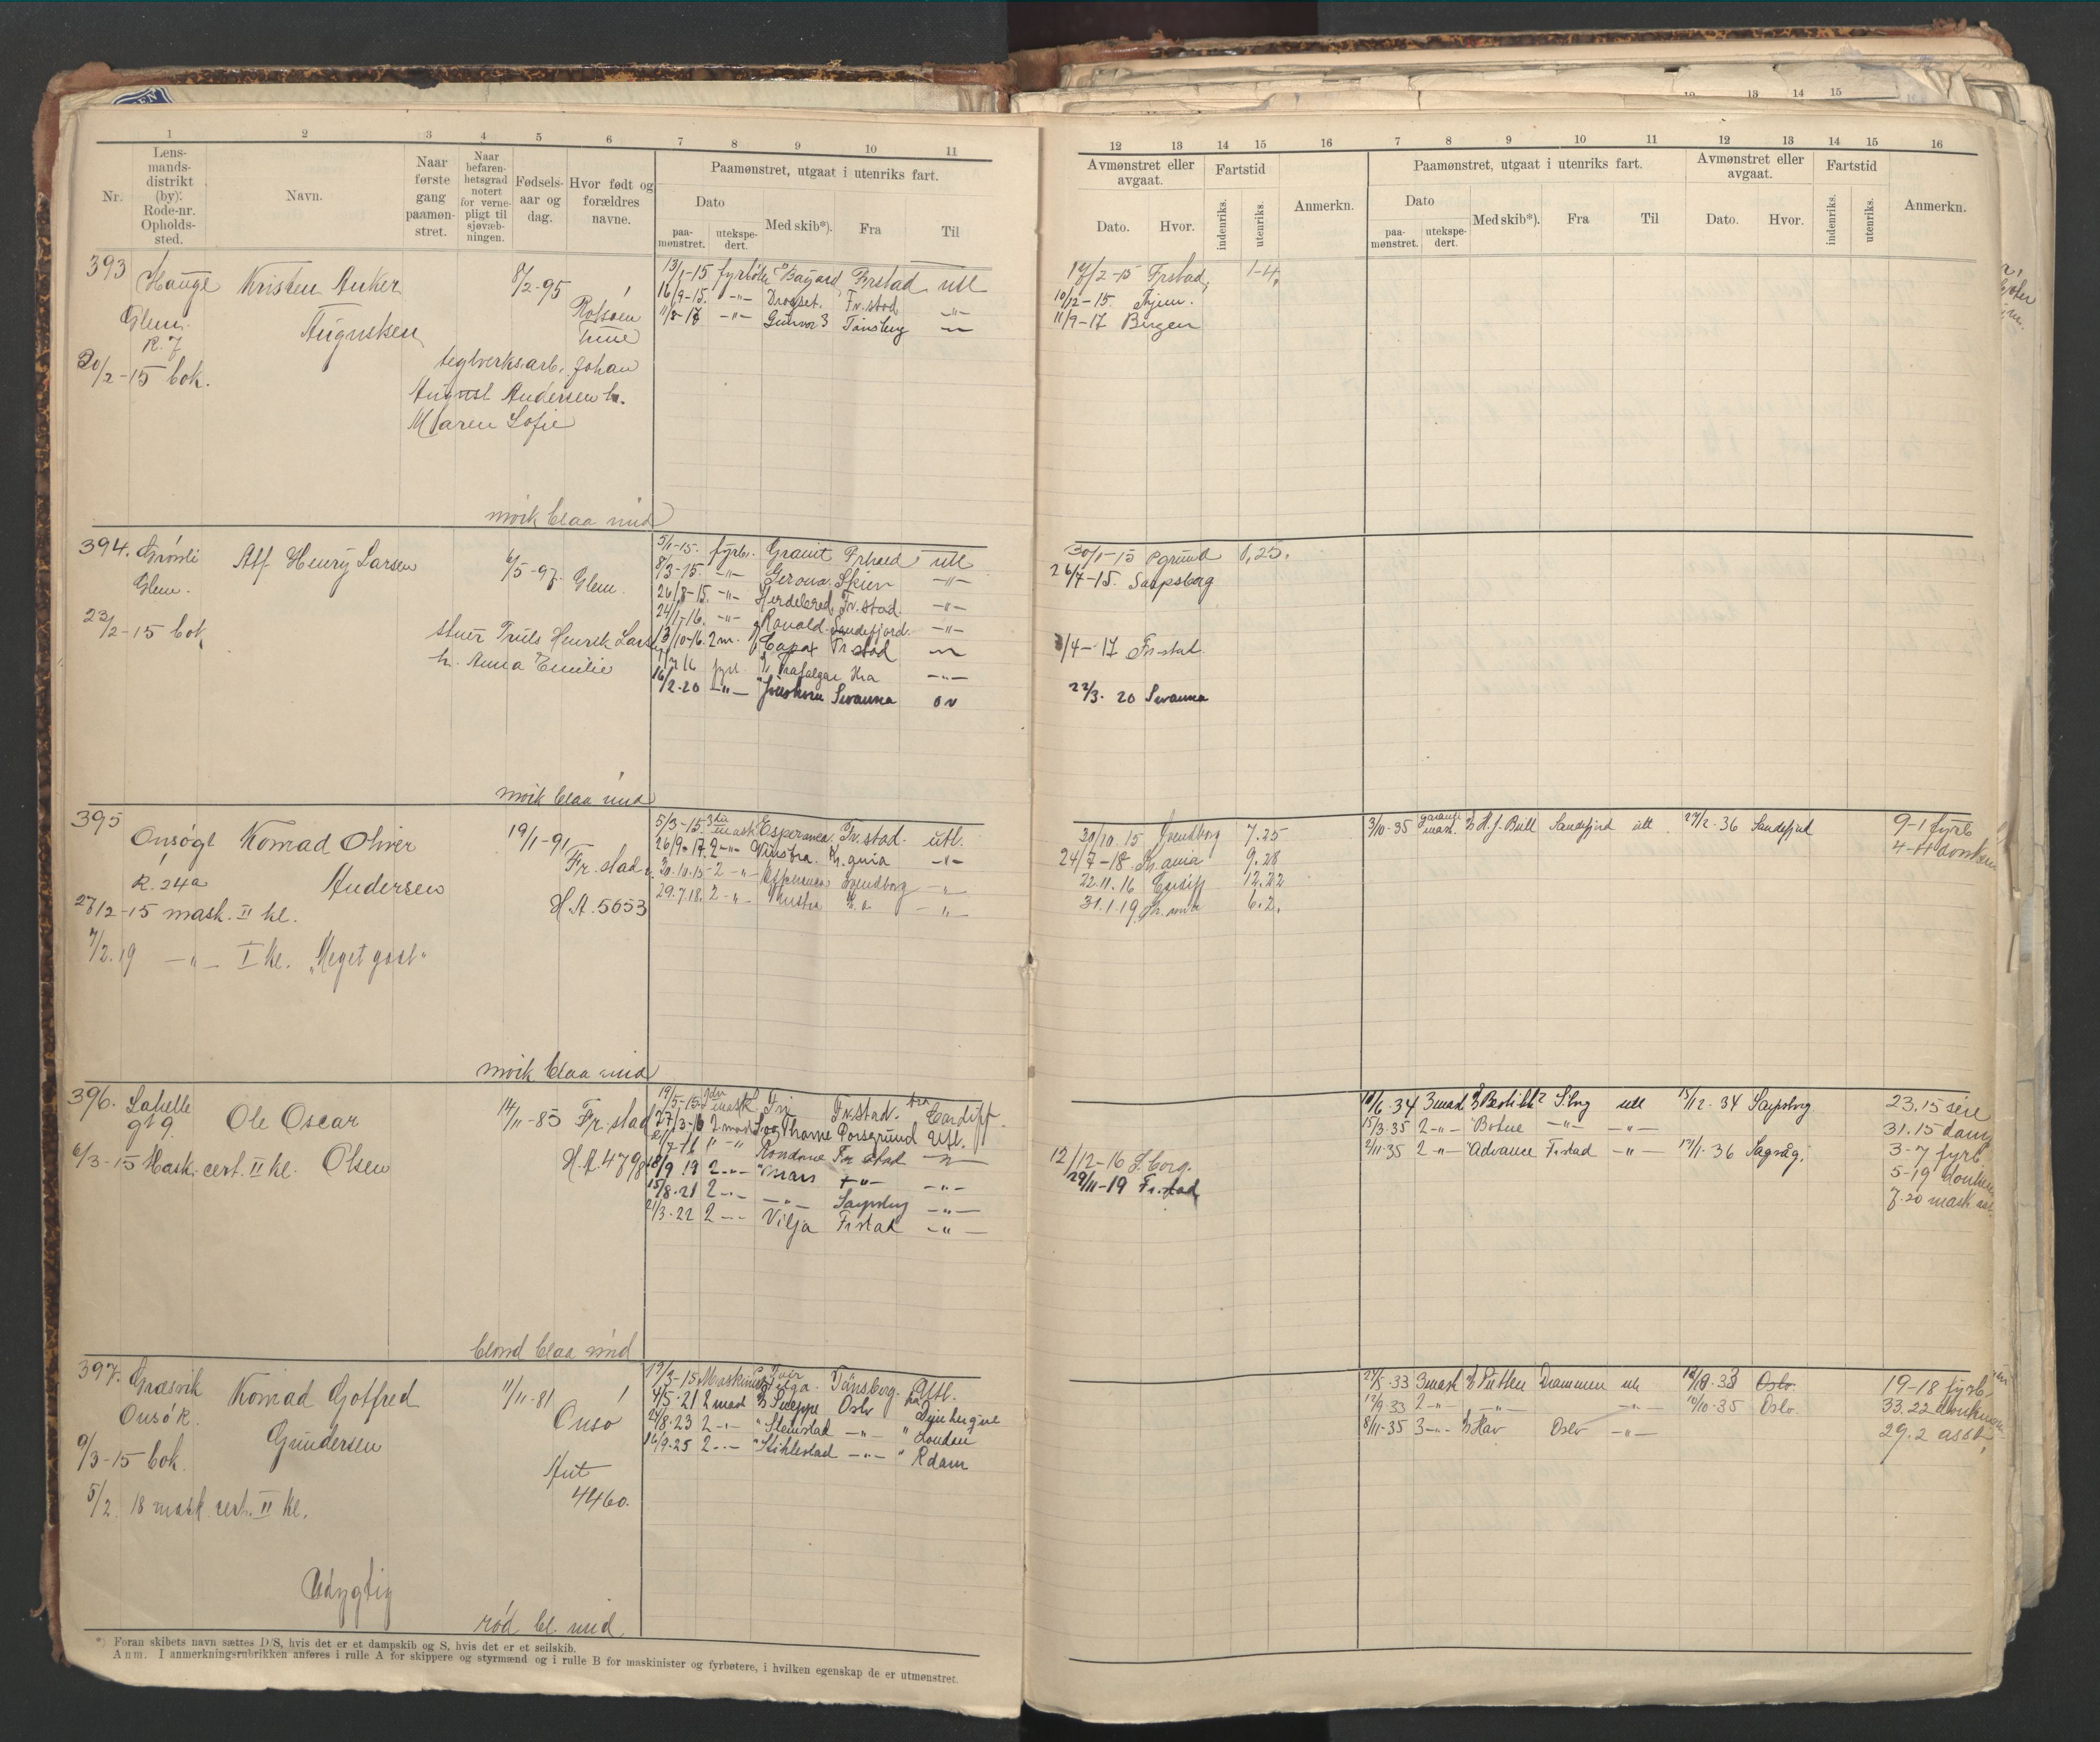 1 2 3 4 5 6 7 8 9 10 11
Nr.
Lens-
mands-
distrikt
(by).
Rode-nr.
Opholds-
sted.
Navn.
Naar
første
gang
paamøn-
stret.
Naar
befaren-
hetsgrad
notert
for verne-
pligt til
sjøvæb-
ningen.
Fødsels-
aar og
dag.
Hvor født og
forældres
navne.
Paamønstret, utgaat i utenriks fart.
Dato
paa-
mønstret.
utekspe-
dert.
Med skib*).
Fra
Til
393 Hauge Kristen Anker 8/2-95
Glem. Augustsen Rolfsøen
R. 7 Tune
20/2-15 bok. teglverksarb. Johan
August Andersen h.
Maren Sofie
mørk blaa mid
13/1-15 fyrbøter Bayard Frstad utl
16/9-15. -"- Drogset. Fr.stad -"-
11/8-17 -"- Gunvor 3 Tønsberg -"-
394. Grønli Alf Henry Larsen 6/5-97. Glem.
Glem.
23/2-15 bok. stuer Truls Henrik Larsen
h. Anna Emilie
mørk blaa mid
5/1-15. fyrb. Granit Frstad utl
8/3-15. -"- Gerona. Skien -"-
26/8-15. -"- Herdebred. Fr.stad. -"-
24/1-16. -"- Ranald. Sandefjord. -"-
13/10-16. 2m. Capax Fr stad -"-
fyrb. Trafalgar Kra -"-
16/2-20 -"- Svanna
395 Onsøgt Konrad Oliver 19/1-91
R. 24a Andersen Fr. stad
27/2-15 mask. II kl. H.A. 5653
7/2.19 -"- I kl. „Meget godt"
mørk blaa mid
5/3-15. 3die mask Esperanca Fr.stad. utl.
26/9-17. 2 -"- Vinstra. Kr.ania -"-
30.10.15 - 2 -"- Esperanca Svendborg -"-
29.7.18. 2 -"- Vinstra K.a -"-
396. Labelle Ole Oscar 14/11-85 Fr. stad
gt 9.
6/3-15 Mask. cert. II kl. Olsen H.A. 4798
blond blaa mid
19/5-15 mask Fri Fr.stad. fra Cardiff.
27/3-16 2 mask Thorne Porsgrund Utl.
-"- Rondane Fr stad -"-
18/9 19 2 -"- Mars -"- -"-
15/8.21 2 -"- -"- Sarpsborg -"-
21/3-22 2 -"- Vilja Frstad -"-
397. Græsvik Konrad Gotfred 11/11-81
Onsø R. Gundersen Onsø
9/3-15 bok. Aut
5/2. 18 mask. cert. II kl. 4460.
Udygtig
rød bl. mid
19/3-15 Maskinist Tønsberg. Utl.
4/5-21 2 mask Sneppe Oslo fra
24/8-23 2 -"- Stenstad -"- " London
16/9-25 2 -"- Stiklestad -"- " Rdam
*) Foran skibets navn sættes D/S, hvis det er et dampskib og S, hvis det er et seilskib.
Anm. I anmerkningsrubrikken anføres i rulle A for skippere og styrmænd og i rulle B for maskinister og fyrbøtere, i hvilken egenskap de er utmønstret.
13 14 15
12 13 14 15 16 7 8 9 10 11 12 13 14 15 16
Avmønstret eller
avgaat.
Dato.
Hvor.
Fartstid
indenriks.
utenriks.
Anmerkn.
Paamønstret, utgaat i utenriks fart.
Dato
paa-
mønstret.
utekspe-
dert.
Med skib*).
Fra
Til
Avmønstret eller
avgaat.
Dato.
Hvor.
Fartstid
indenriks.
utenriks.
Anmerkn.
17/2-15 Frstad, 1-4,
10/12-15. Hjem.
11/9-17 Bergen
30/1-15 Pgrund 0,25.
26/7-15. Sarpsborg
3/4-17 Fr.stad.
22/3. 20 Svanna
30/10.15 Svendborg 7.25
24/7-18. Kr.ania 9.28
22.11.16 Cardiff 12.22
31.1.19 Kr.ania 6.2.
3/10-35 garanti mask. H. J. Bull Sandefjord utl. 29/2-36 Sandefjord
9-1 fyrb
4-11 donkem
12/12-16 S.borg.
29/11-19 Fr.stad
10/6.34 3 mask S.brg utl 15/12.34 Sarpsborg
15/3.35 2 -"- -"- -"-
2/11.35 2 -"- "Advance Frstad -"- 17/1.36 Sagvåg.
31.15 damp
3-7 fyrb
7.20 mask ass.
27/5.33 3 mask Drammen utl Oslo.
12/9 33 2 -"- -"- -"- 12/10.35 Oslo
8/11-35 3 -"- Hav Oslo -"-
19-18 fyrb.
33.22 donkeym
29.2 asst.